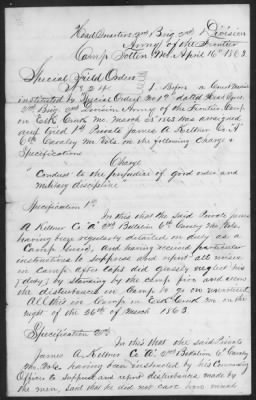 Head Quarters 2nd Brig 2nd Division
Army of the Frontier
Camp Totten Mo. April 16th 1863
Special Field Orders
No 24 1. Before a Court Martial
instituted by Special Orders No 19 dated Head Qrs.
2nd Brig 2nd Division Army of the Frontier Camp
on Elk Creek Mo. March 25 1863 was arraigned
and tried 1st Private James A Keltner Co "A"
6th Cavalry Mo. Vols. on the following Charge &
Specifications
Charge
Conduct to the prejudice of good order and
military discipline
Specification 1st
In this that the said Private James
A Keltner Co "A" 2nd Battalion 6th Cavalry Mo. Vols,
having been regularly detailed on duty as a
Camp Guard, and having received particular
instructions to suppress and report all noise
in camp after taps did grossly neglect his
duty, by standing by the camp fire and allow
the disturbance on Camp to go on unnoticed
All this in Camp on Elk Creek Mo on the
night of the 26th of March 1863
Specification 2nd
In this that the said Private
James A Keltner Co "A" 2nd Battalion 6th Cavalry
Mo. Vols having been instructed by his Commanding
Officer to suppress and report disturbance made by
the men, said that he did not care how much